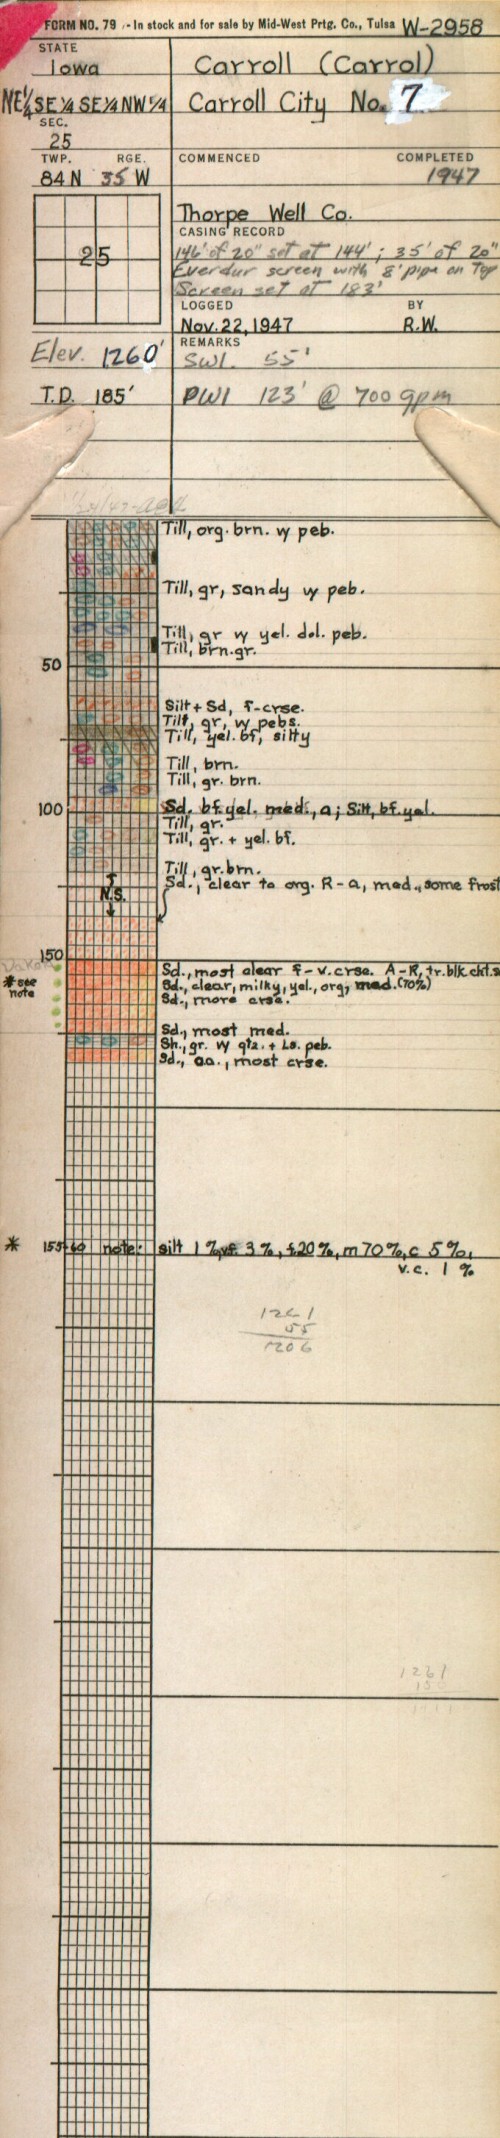 FORM NO. 79 - In stock and for sale by Mid-West Prtg. Co., Tulsa W-2958
STATE
Iowa
Carroll (Carrol)
NE¼ SE¼ SE¼ NW¼
Carroll City No. 7
SEC.
25
TWP. RGE.
84 N 35 W
COMMENCED COMPLETED
1947
25
Thorpe Well Co.
CASING RECORD
146' of 20" set at 144'; 35' of 20"
Everdur screen with 8' pipe on Top
Screen set at 183'
LOGGED BY
Nov. 22, 1947 R.W.
REMARKS
Elev. 1260'
SWL 55'
T.D. 185'
PWL 123' @ 700 gpm
Till, org. brn. w peb.
Till, gr, sandy w peb.
Till, gr w yel. dol. peb.
Till, brn.gr.
50
Silt + Sd, f-crse.
Till, gr, w pebs.
Till, yel. bf, silty
Till, brn.
Till, gr. brn.
100
Sd. bf. yel. med., a; Silt, bf. yel.
Till, gr.
Till, gr. + yel. bf.
Till, gr. brn.
Sd., clear to org. R-a, med., some frost
N.S.
150
Dakota
* see note
Sd., most clear f-v.crse. A-R, tr. blk. cht.
Sd., clear, milky, yel., org, med. (70%)
Sd., more crse.
Sd., most med.
Sh., gr. w qtz. + Ls. peb.
Sd., aa., most crse.
* 155-60 note: silt 1%, vf 3%, f 20%, m 70%, c 5%,
v.c. 1%
1261
55
1206
1261